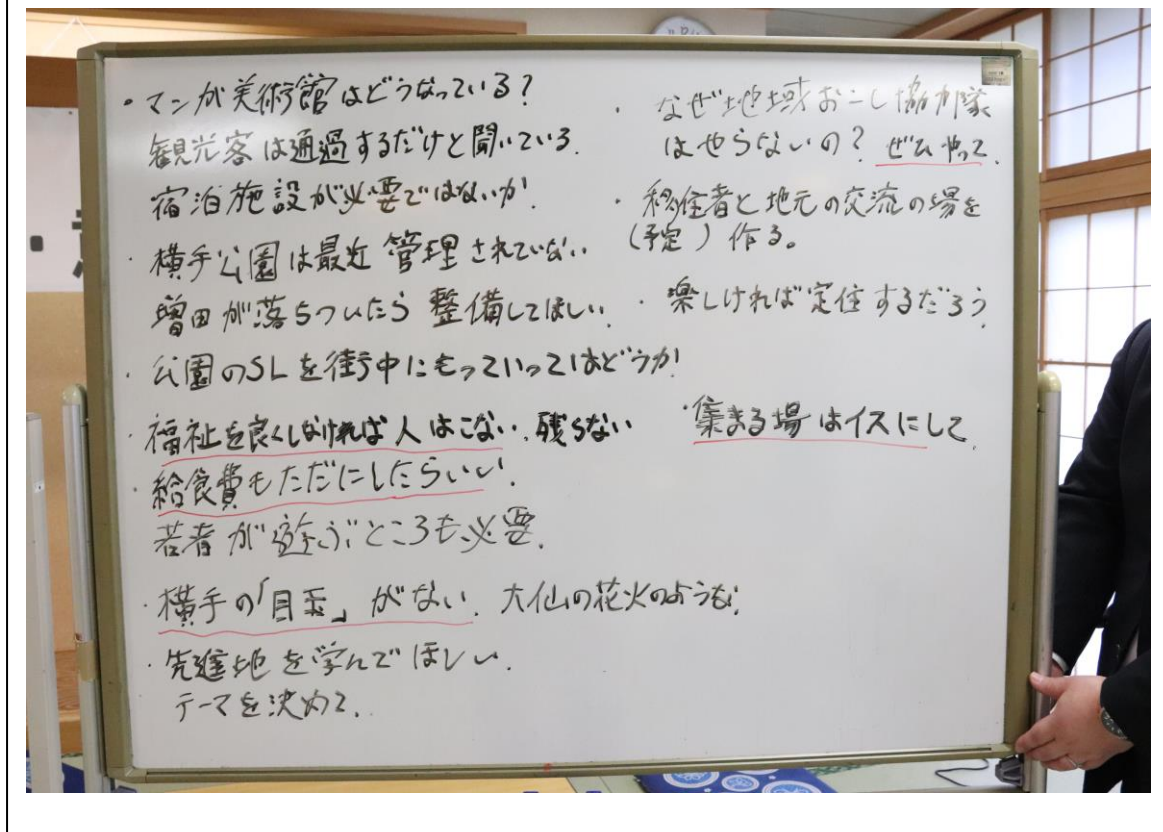 ・マンガ美術館はどうなっている?
観光客は通過するだけと聞いている.
宿泊施設が必要ではないか!
・横手公園は最近管理されていない
増田が落ちついたら整備してほしい.
・公園のSLを街中にもっていってはどうか!
・福祉を良くしなければ人はこない.残らない
・給食費もただにしたらいい.
若者が遊ぶところも必要.
・横手の「目玉」がない.大仙の花火のような.
・先進地を学んでほしい.
テーマを決めて.
・なぜ地域おこし協力隊
はやらないの?ぜひやって.
・移住者と地元の交流の場を
(予定)作る。
・楽しければ定住するだろう.
・集まる場はイスにして.